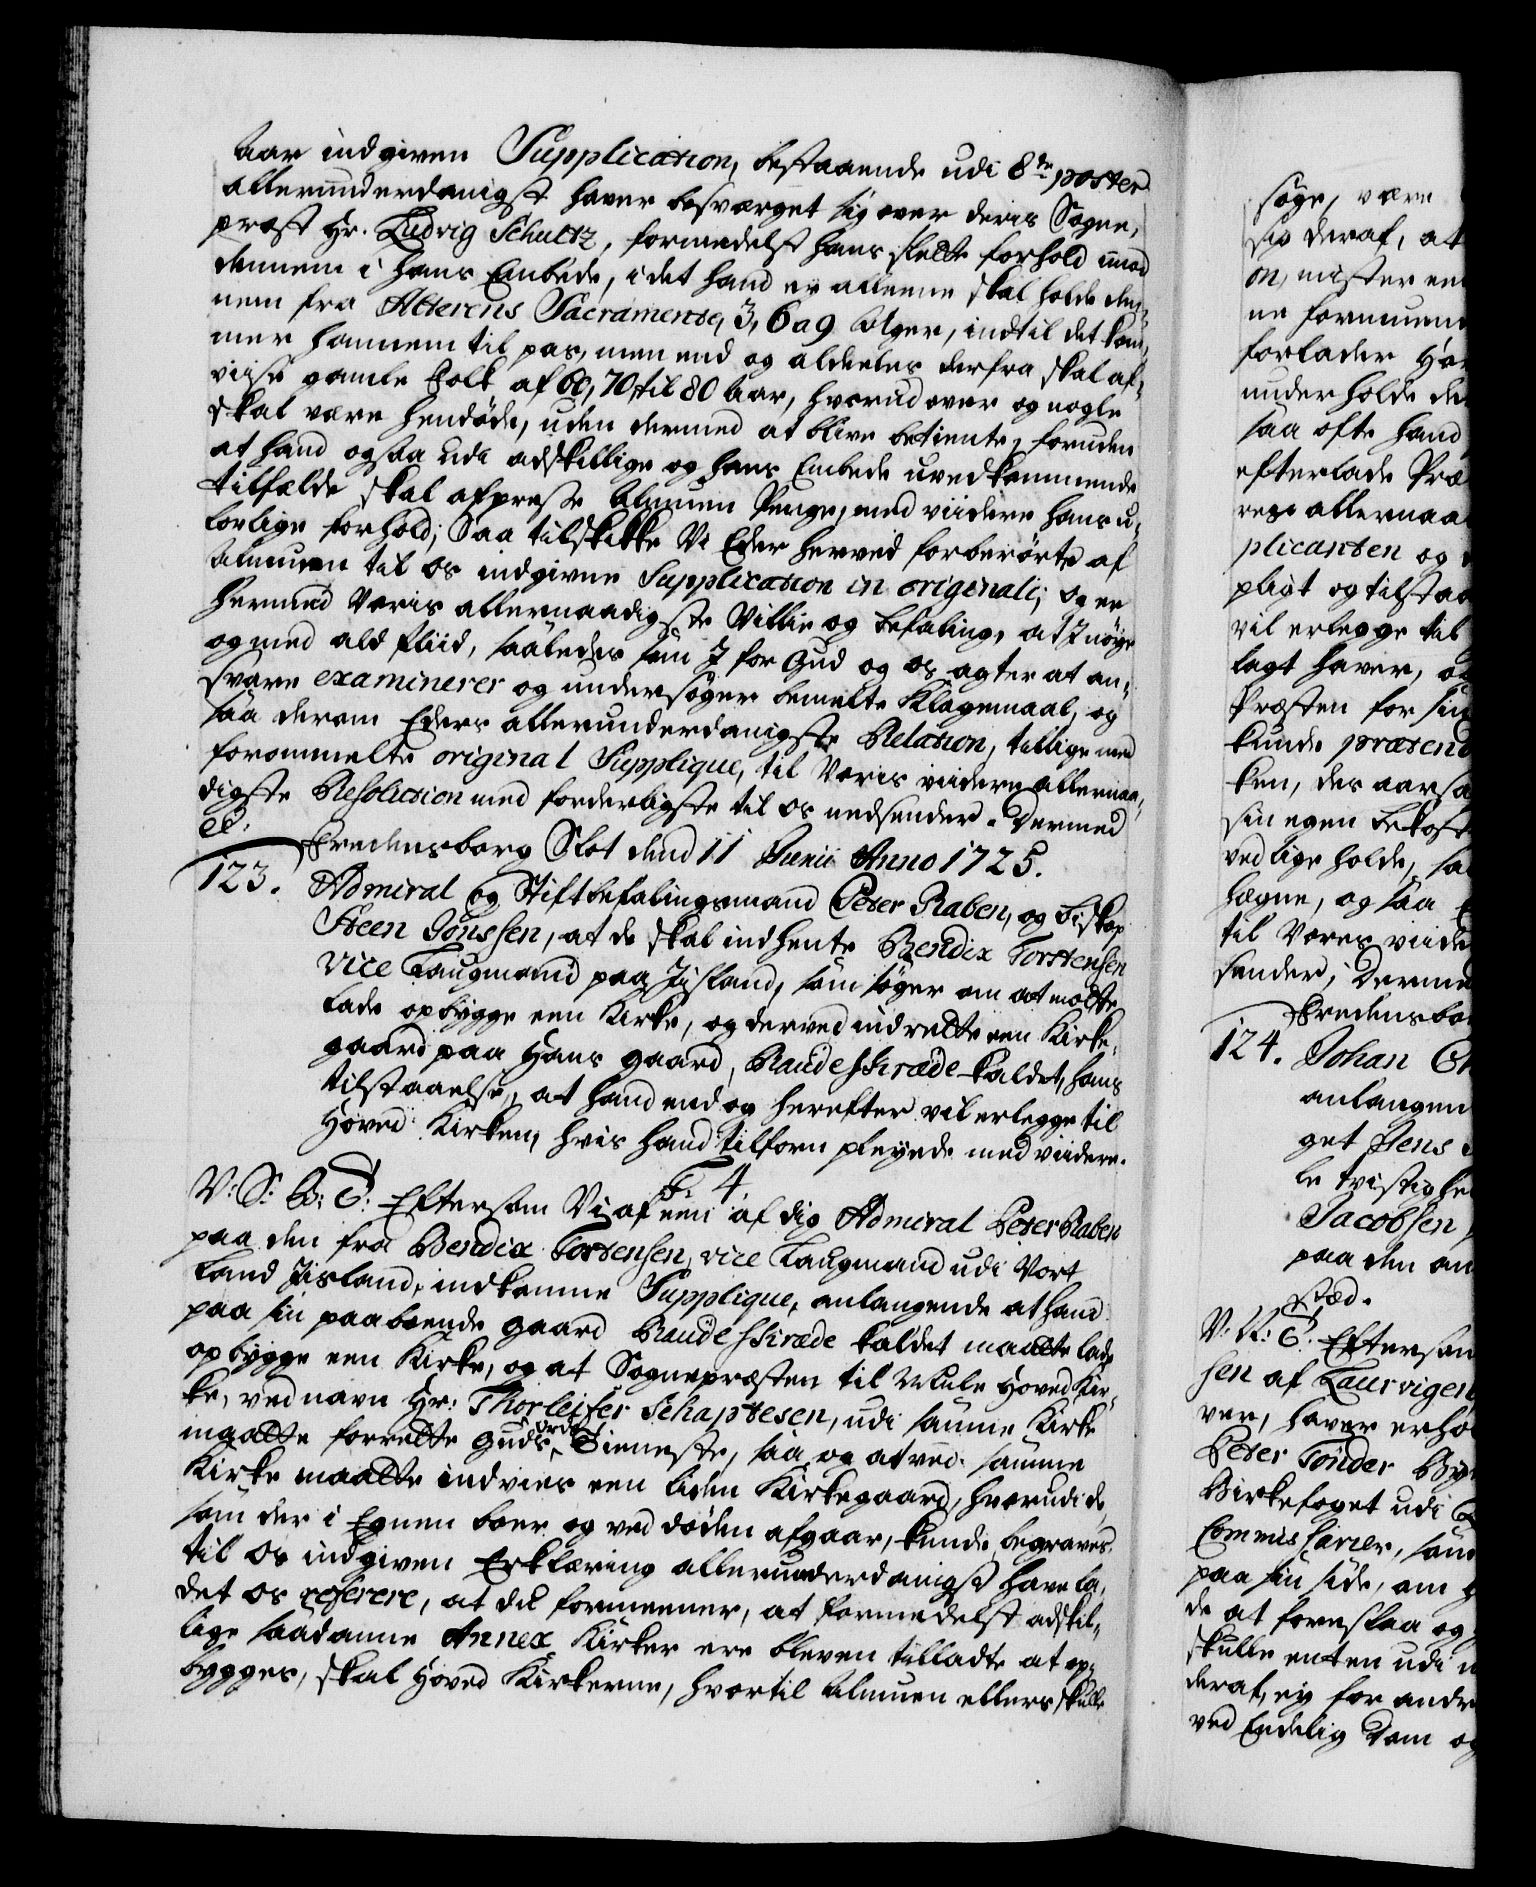 Aar indgiven Supplication, bestaaende udi 8te poster
allerunderdanigst haver besværget sig over deris Sogne,
præst Hr. Ludvig Schultz, formedelst hans slette forhold imod
dennem i hans Embede, i det hand ey alleene skal holde den,
nem fra Alterens Sacramente, 3, 6 a 9 Uger, indtil det kom,
mer hannem til pas, men end og aldeeles derfra skal af,
viise gamle Folk af 60, 70, til 80 Aar, hvorudover og nogle
skal være hendøde, uden dermed at blive betiente, foruden
at hand ogsaa udi adskillige og hans Embede uvedkommende
tilfælde skal afpresse Almuen Penge, med viidere hans u,
lovlige forhold; Saa tilskikke Vi Eder herved forberørte af
Almuen til os indgivne Supplication in originali; og er
hermed Voris allernaadigste Villie og Befaling, at I nøye
og med ald Fliid, saaledes som I for Gud og os agter at an,
svare examinerer og undersøger bemelte Klagemaal, og
saa derom Eders allerunderdanigste Relation, tillige med
forommelte original Supplique, til Voris viidere allernaa,
digste Resolution med forderligste til os nedsender. Dermed
etc.
Fredensborg Slot dend 11 Junii Anno 1725.
123. Admiral og Stiftbefalingsmand Peter Raben, og Biskop
Steen Jonssen, at de skal indhente Bendix Torstensen
Vice Laugmand paa Jisland, som søger om at motte
lade opbygge een Kirke, og derved indrette een Kirke,
gaard paa Hans gaard, Raudesskræde kaldet, hans
tilstaaelse, at hand end og herefter vil erlegge til
Hoved Kirken, hvis hand tilforn pleyede med viidere.
F. 4.
V: S: B: T: Eftersom Vi af een af dig Admiral Peter Raben
paa den fra Bendix Torstensen, vice Laugmand udi Vort
Land Jisland, indkomne Supplique, anlangende at hand
paa sin paaboende gaard Raudesskræde kaldet maatte lade
opbygge een Kirke, og at Sognepræsten til Mule Hoved Kir,
ke, ved navn Hr: Thorleifer Schaptesen, udi samme Kirke
maatte forrette Guds Ords Tieneste, saa og at ved samme
Kirke maatte indvies een liden Kirkegaard, hvorudi de,
som der i Egnen boer og ved døden afgaar, kunde begraves,
til Os indgiven Erklæring allerunderdanigst have la,
det os referere, at du formeener, at formedelst adskil,
lige saadanne Annex Kirker ere bleven tilladte at op,
bygges, skal Hoved Kirkerne, hvortil Almuen ellers skulle
søge, være
sig deraf, at
on, mister en
ne formeene
forlader Ha
underholde de
saa ofte hand
efterlade Præ
res allernaa
plicanten og
pligt og tilstaa
vil erlegge til
lagt haver, o
Præsten for sin
kunde prætend
ken, des aarsa
sin egen bekost
ved lige holde, sa
hegne, og saa
til Vores viide
sender; Dermed
Fredensbo
124. Johan Ch
anlangen
get Jens
le tvistighe
Jacobsen
paa den an
sted.
V: A: T: Eftersom
sen af Laurvigen
ver, haver erho
Peter Tønder By
Birkefoget udi
Commissarier, som
paa sin side, om
de at foreslaa og
skulle enten udi
deraf, ey for andr
ved Endelig Dom og